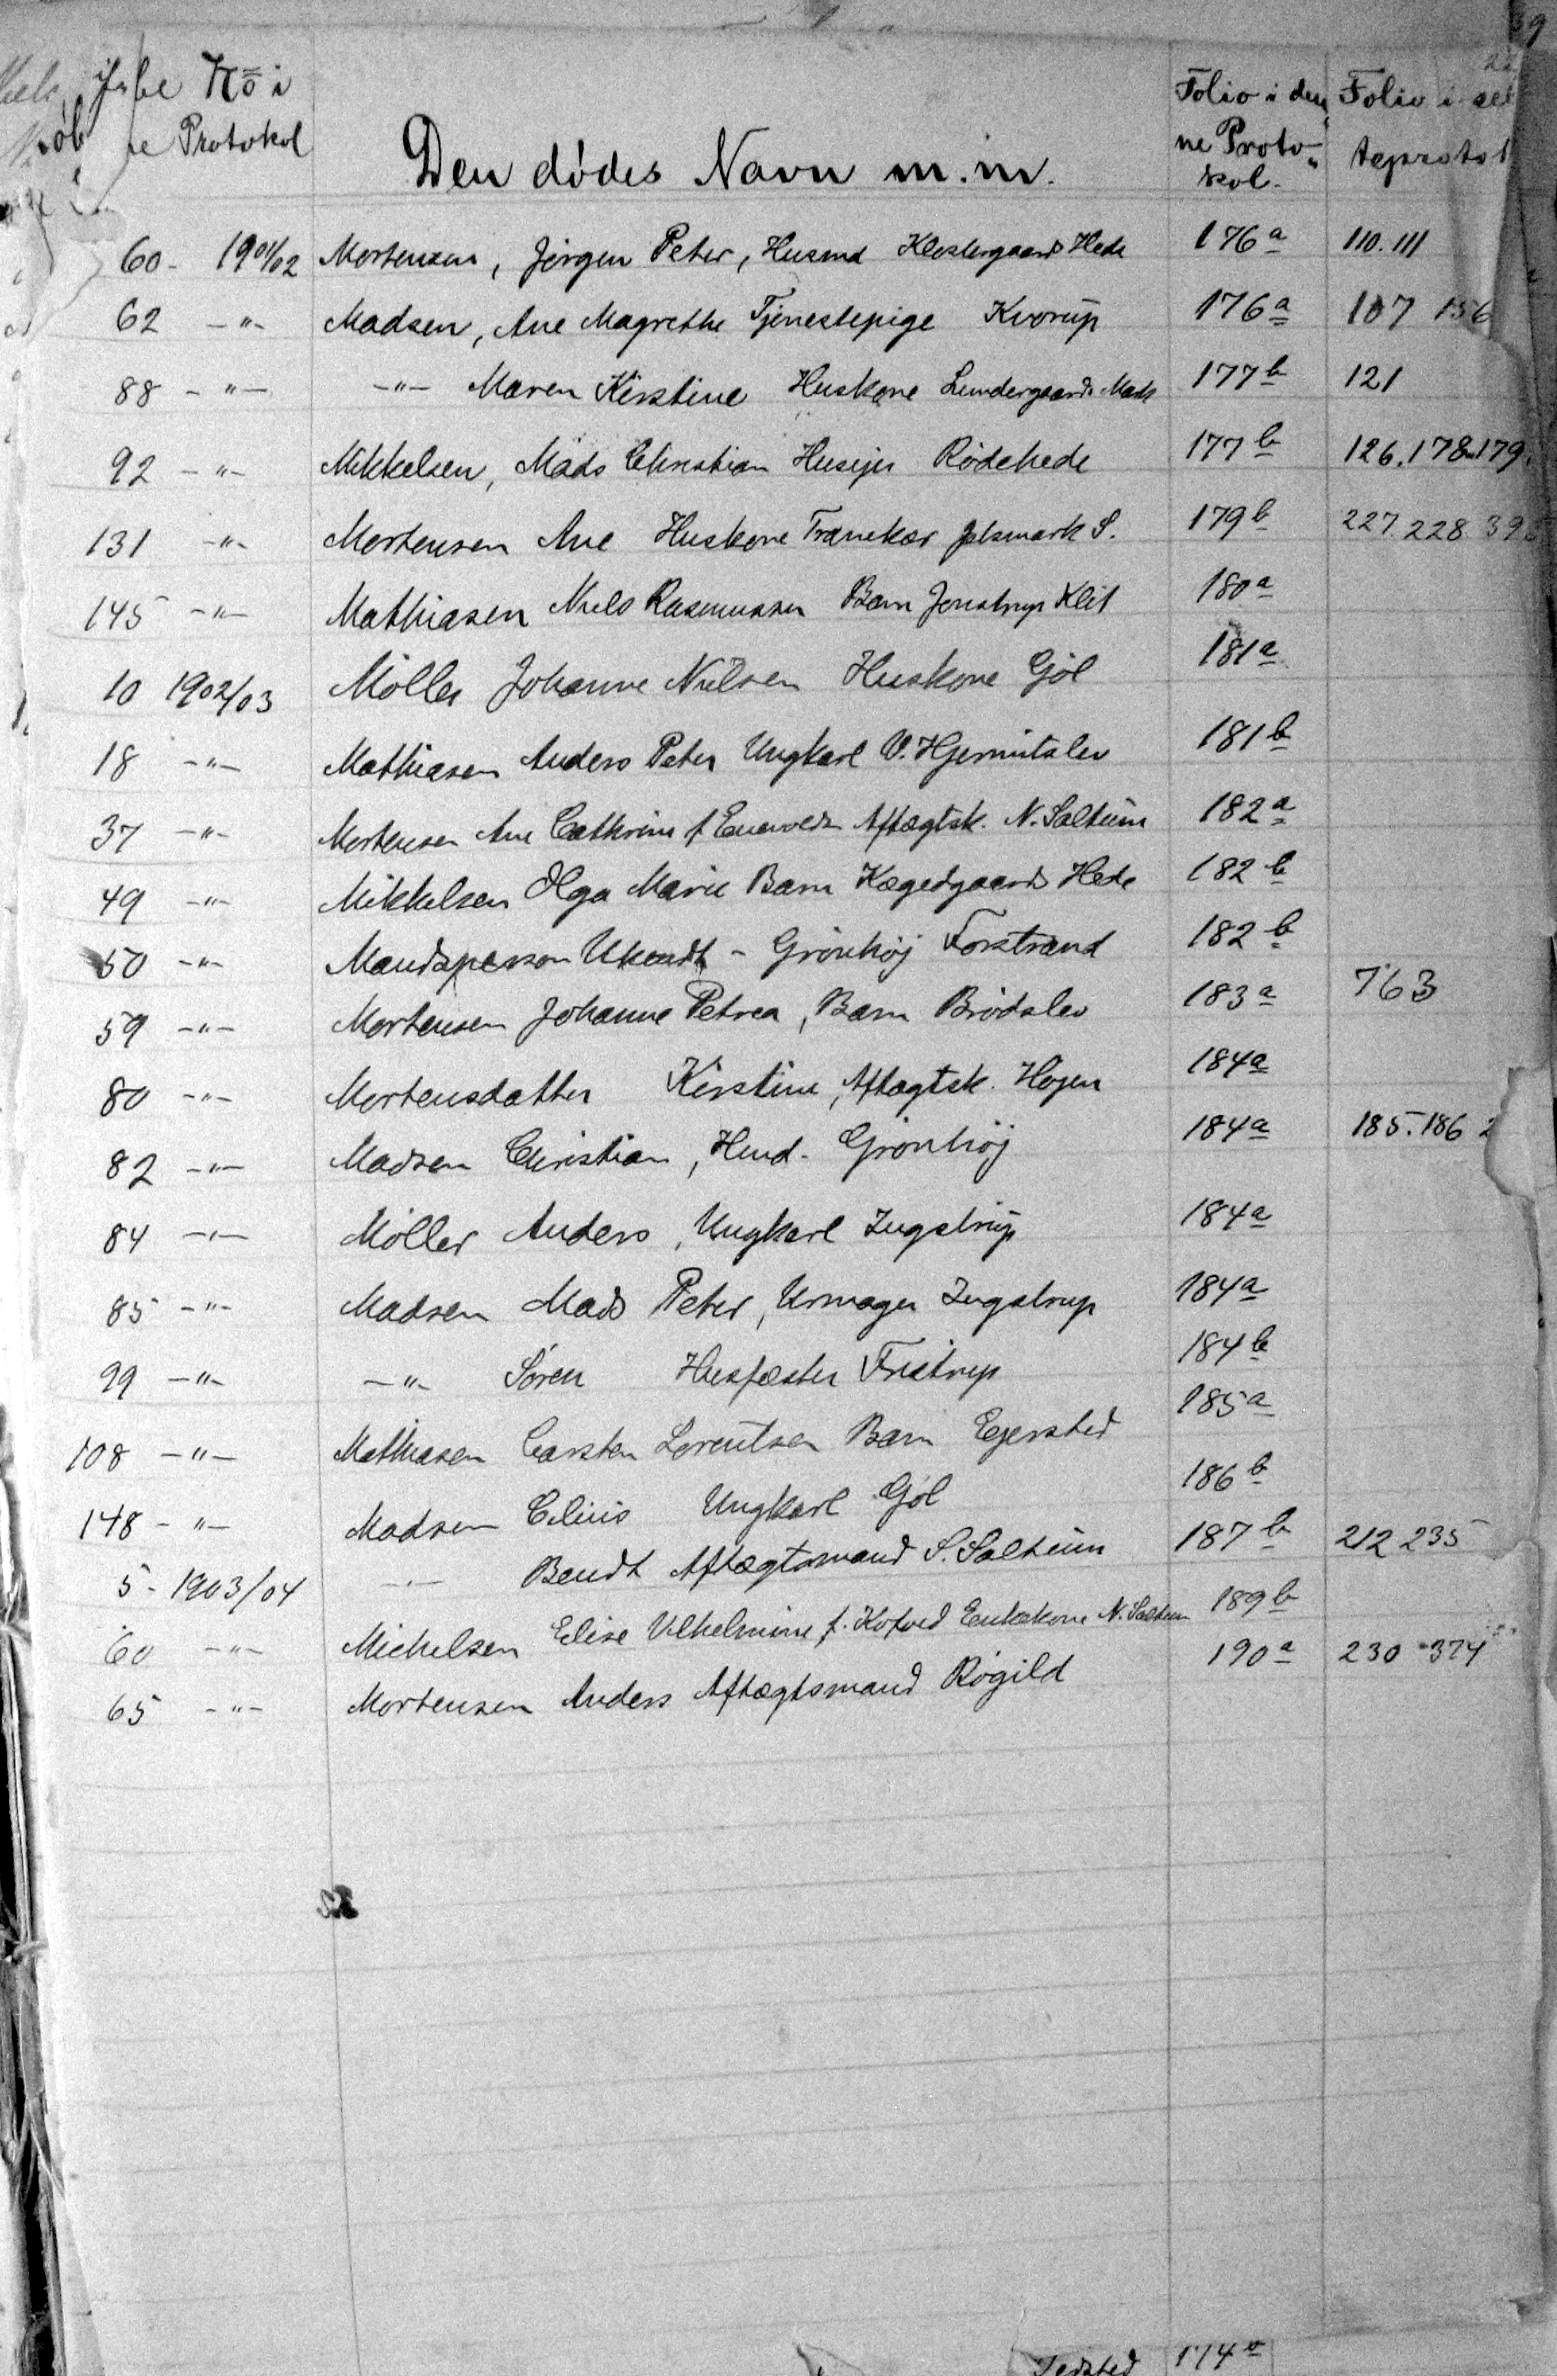 39
No i Folio i den Folio i
Protokol Den dødes Navn m.m. ne Proto-
kol.
60 - 1901/02 Mortensen, Jørgen Peter, Husmd Klostergaards Hede 176a 110.111
62 -"- Madsen, Ane Magrethe Tjenestepige Kvorup 176a 107 156
88 -"- -"- Maren Kirstine Huskone Lundergaards Mark 177b 121
92 -"- Mikkelsen, Mads Christian Husejer Rødehede 177b 126.178-179.
131 -"- Mortensen Ane Huskone Tranekær S. 179b 227.228
145 -"- Mathiasen Niels Rasmussen Barn Jonstrup Klit 180a
10 1902/03 Møller Johanne Nielsen Huskone Gjøl 181a
18 -"- Mathiasen Anders Peter Ungkarl V. Hjermitslev 181b
37 -"- Mortensen Ane Cathrine f. Aftægtsk. N. Saltum 182a
49 -"- Mikkelsen Olga Marie Barn Kægedgaards Hede 182b
50 -"- Mandsperson Ukendt - Grønhøj Forstrand 182b
59 -"- Mortensen Johanne Petrea, Barn Brødslev 183a 763
80 -"- Mortensdatter Kirstine, Aftægtsk. Hojen 184a
82 -"- Madsen Christian, Hmd. Grønhøj 184a 185.186
84 -"- Møller Anders, Ungkarl Ingstrup 184a
85 -"- Madsen Mads Peter, Urmager Ingstrup 184a
99 -"- -"- Søren Husfæster Fristrup 184b
108 -"- Mathiasen Carsten Lorentsen Barn Ejersted 185a
148 -"- Madsen Elius Ungkarl Gjøl 186b
5 - 1903/04 -"- Bendt Aftægtsmand S. Saltum 187b 212 235
60 -"- Michelsen Elise Vilhelmine f. Kotved Enkekone N. Saltum 189b
65 -"- Mortensen Anders Aftægtsmand Røgild 190a 230 374
174